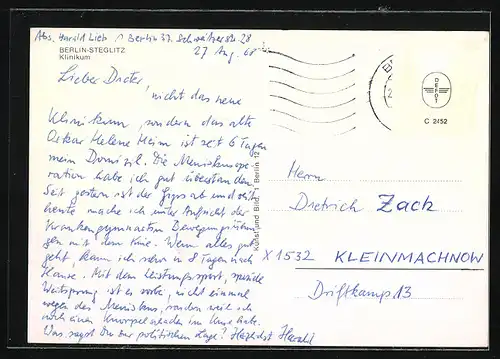 Abs. Harald Lieb 1 Berlin 37 Schweitzerstr. 28
BERLIN-STEGLITZ
Klinikum
27 Aug. 68
Lieber Dieter,
nicht das neue
Klinikum, sondern das alte
Oskar Helene Heim ist seit 6 Tagen
mein Domizil. Die Meniskusope-
ration habe ich gut überstanden.
Seit gestern ist der Gips ab und seit
heute mache ich unter Aufsicht der
Krankengymnastin Bewegungsübun-
gen mit dem Knie. Wenn alles gut
geht, kann ich schon in 8 Tagen nach
Hause. Mit dem Leistungssport, speziell
Weitsprung ist es vorbei, nicht einmal
wegen des Meniskus, sondern weil ich
noch einen Knorpelschaden im Knie habe.
Was sagst Du zur politischen Lage? Herzlichst Harald
Kunst und Bild, 1 Berlin 12
DEPOT
C 2452
Herrn
Dietrich Zach
X 1532 KLEINMACHNOW
Driftkamp 13